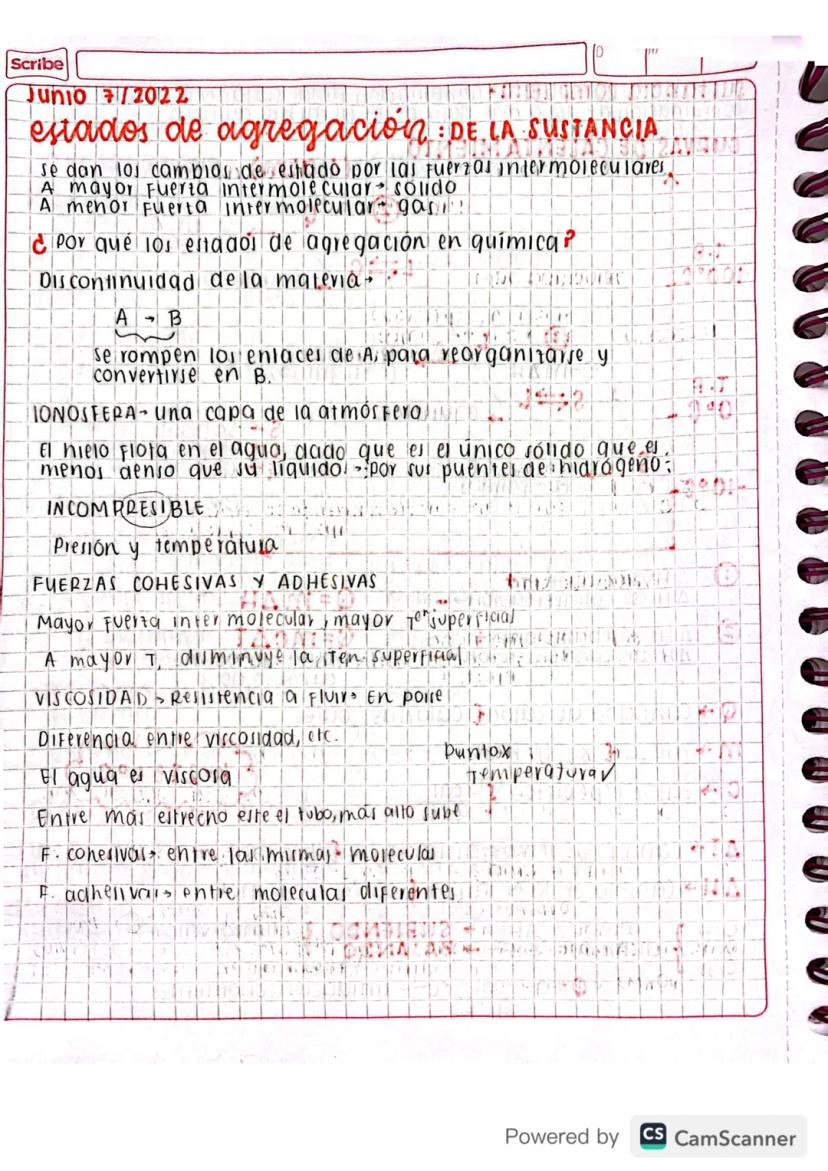 Scribe
Junio 7/2022
estados de agregación: DE LA SUSTANCIA
se dan los cambios de estado por las fuerzas intermoleculares
A mayor fuerza intermolecular → sólido
A menor fuerza intermolecular → gas
¿Por qué los estados de agregación en química?
Discontinuidad de la materia →
A → B
se rompen los enlaces de A, para reorganizarse y
convertirse en B.
IONOSFERA → una capa de la atmósfera
El hielo flota en el agua, dado que es el único sólido que es
menos denso que su líquido → por sus puentes de hidrógeno
INCOMPRESIBLE
Presión y temperatura
FUERZAS COHESIVAS Y ADHESIVAS
Mayor fuerza inter molecular, mayor Ten superficial
A mayor T, disminuye la Ten superficial
VISCOSIDAD → Resistencia a fluir → En poise
Diferencia entre viscosidad, etc.
Punto x
El agua es viscosa
Temperatura ✓
Entre más estrecho este el tubo, más alto sube
F. cohesivas → entre las mismas moleculas
F. adhesivas → entre moleculas diferentes
Powered by CS CamScanner